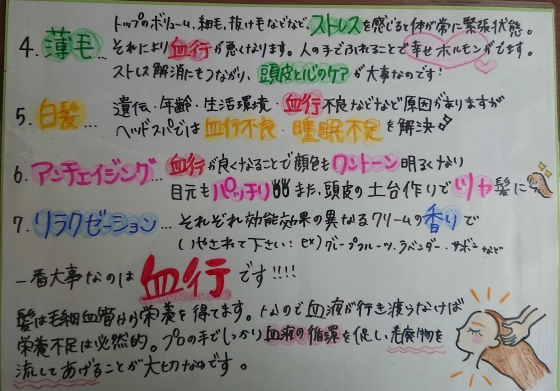 トップのボリューム、細毛、抜け毛などなど、ストレスを感じると体が常に緊張状態。
4. 薄毛… それにより血行が悪くなります。人の手でふれることで幸せホルモンがでます。
ストレス解消にもつながり、頭皮と心のケアが大事なのです!
5. 白髪… 遺伝・年齢・生活環境・血行不良などなど原因がありますが
ヘッドスパでは血行不良・睡眠不足を解決
6. アンチエイジング… 血行が良くなることで顔色もワントーン明るくなり
目元もパッチリ!!! また、頭皮の土台作りでツヤ髪に
7. リラクゼーション… それぞれ効能効果の異なるクリームの香りで
いやされて下さい! ex) グレープフルーツ、ラベンダー、サボンなど
一番大事なのは血行です!!!!
髪は毛細血管から栄養を得てます。なので血液が行き渡らなければ
栄養不足は必然的。プロの手でしっかり血液の循環を促し、老廃物を
流してあげることが大切なのです。